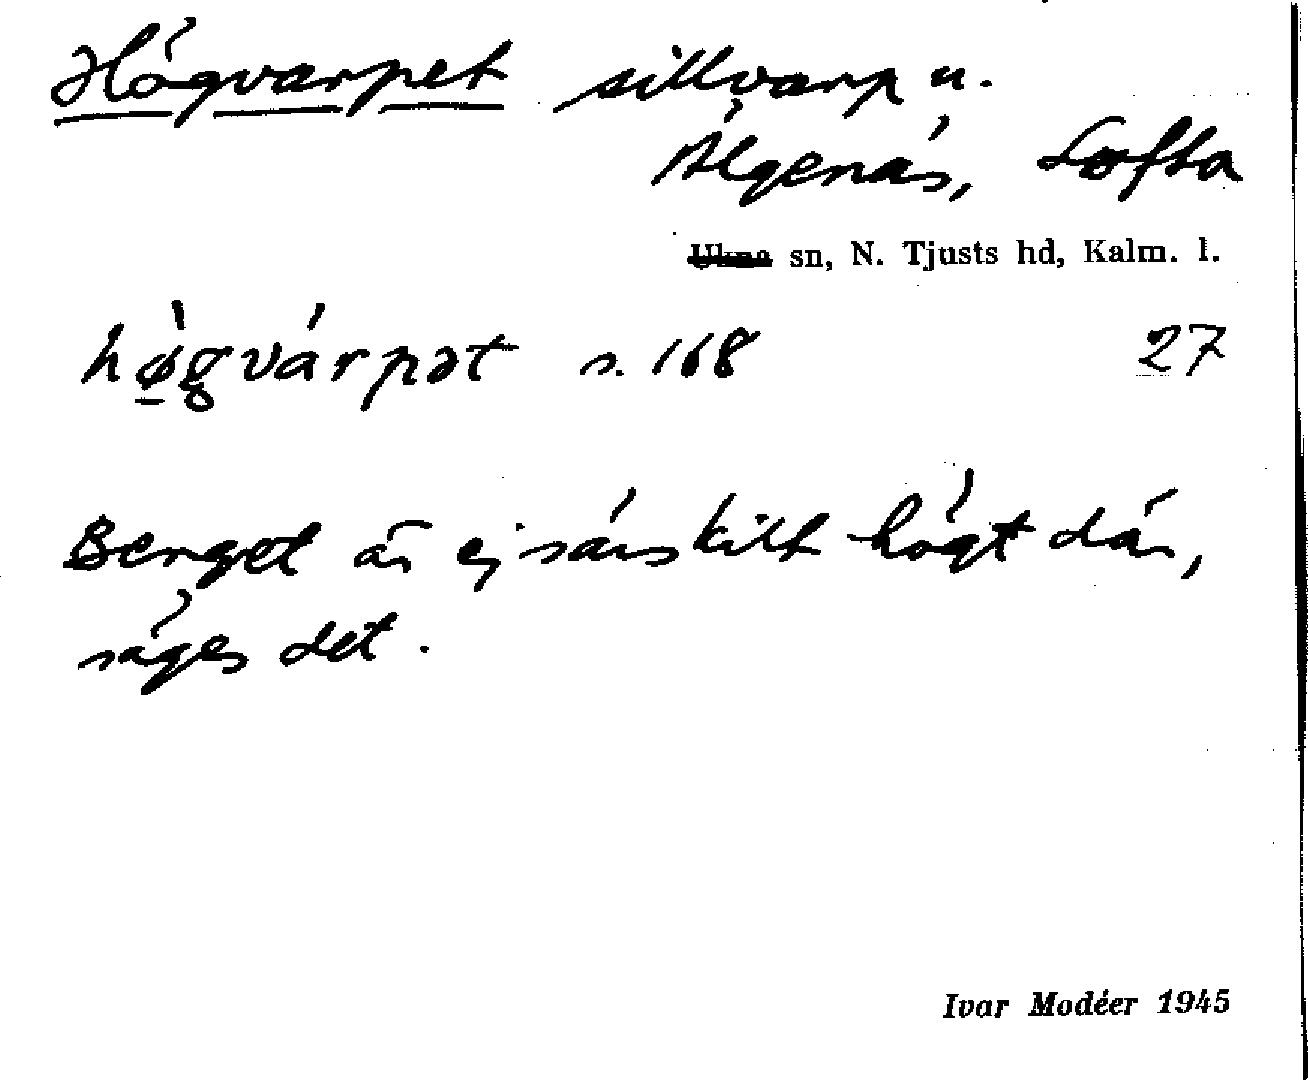 Högvarpet sillvarp u.
Älgenäs, Lofta
Ukna sn, N. Tjusts hd, Kalm. l.
hø̀gvárpət s. 168 27
Berget är ej särskilt högt där,
säges det.
Ivar Modéer 1945